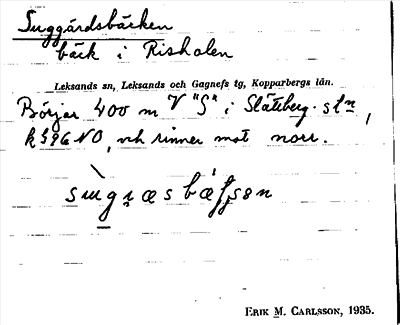 Suggårdsbäcken
bäck i Risholen
Leksands sn, Leksands och Gagnefs tg, Kopparbergs län.
Börjar 400 m V "S" i Slättberg. stn,
k 596 NO, och rinner mot norr.
ERIK M. CARLSSON, 1935.